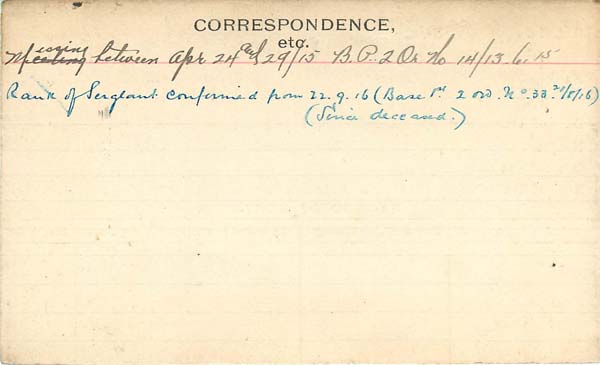 CORRESPONDENCE,
etc.
Missing between Apr 24 and 29/15 B.P. 2 Or No 14/13.6.15
Rank of Sergeant confirmed from 22.9.16 (Base Pt 2 ord. No. 33 21/5/16)
(Since deceased.)